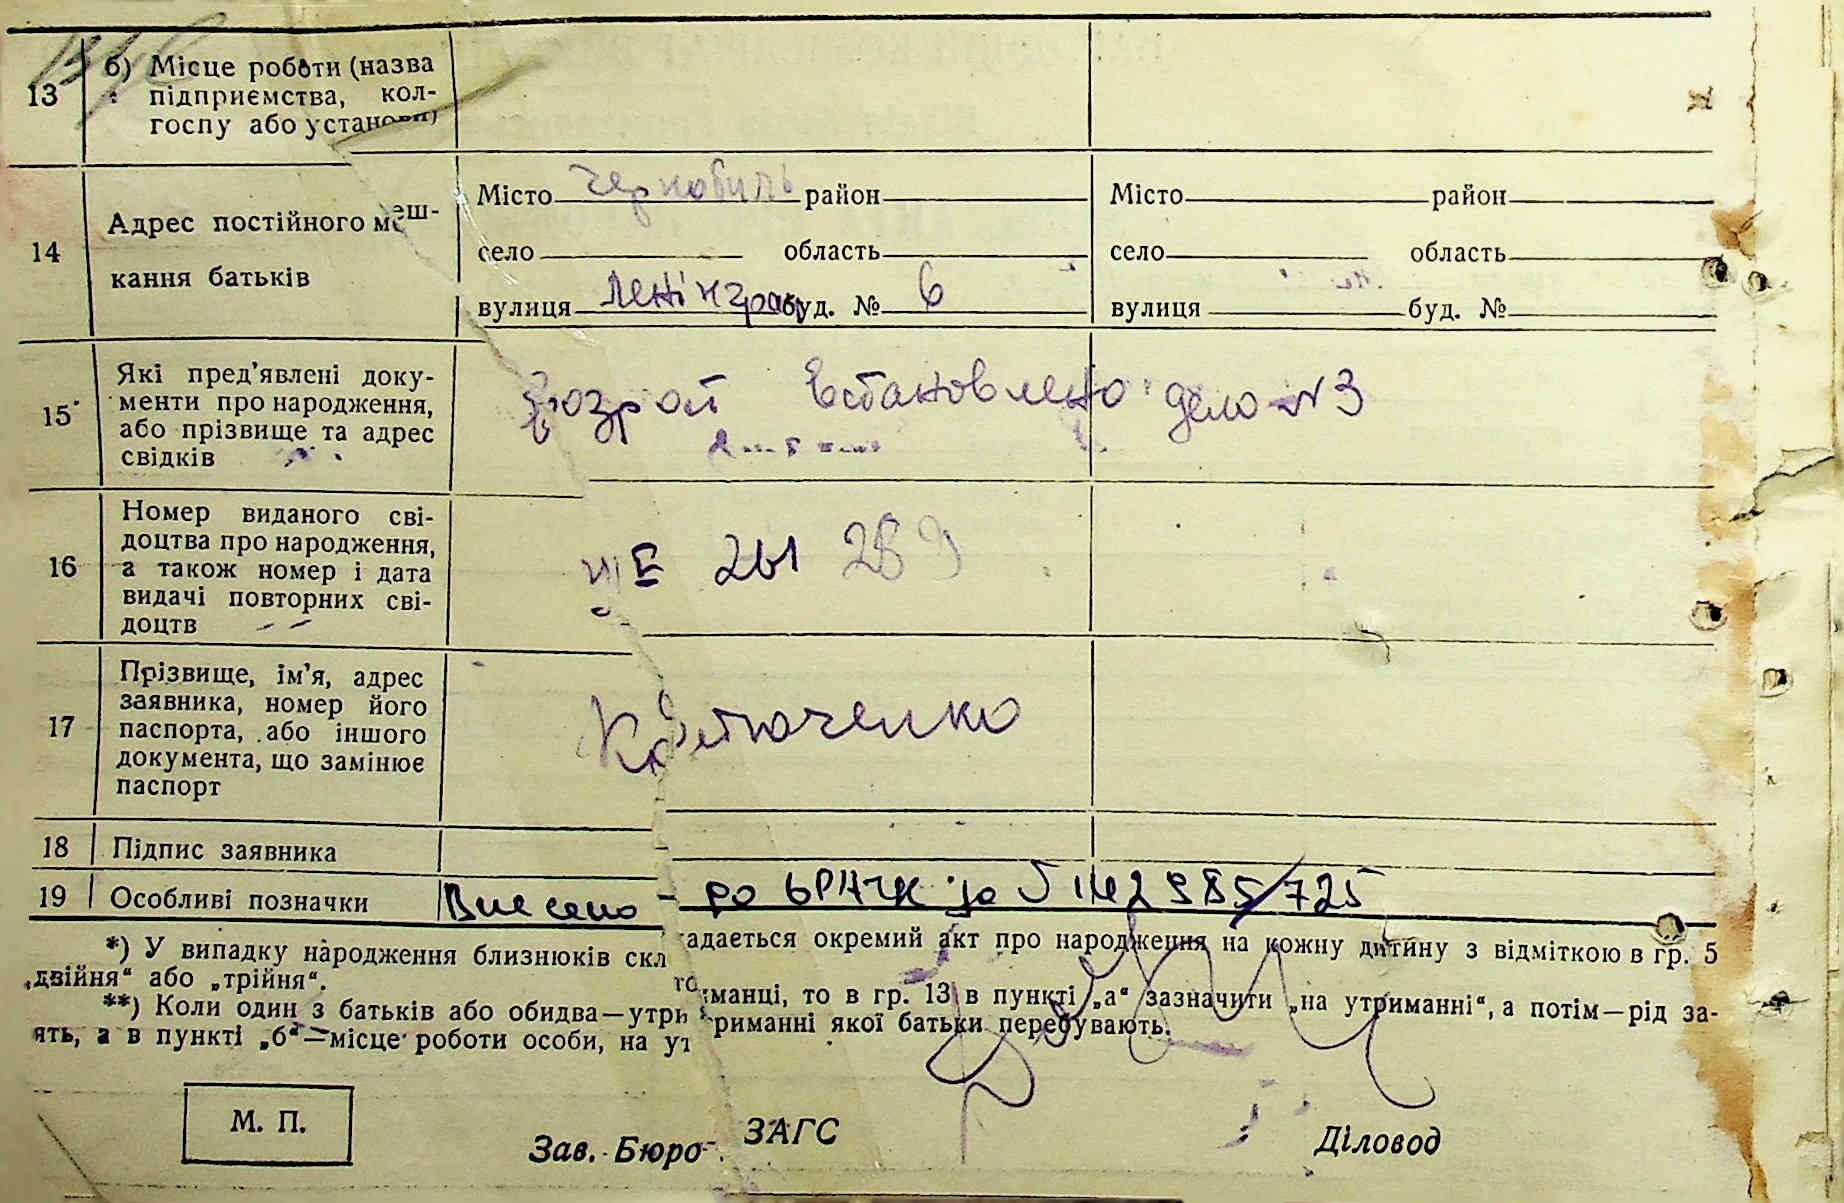 13 б) Місце роботи (назва
підприємства, кол-
госпу або установи)
14 Адрес постійного меш-
кання батьків
Місто Чернобиль район
село область
вулиця Ленінград буд. № 6
Місто район
село область
вулиця буд. №
15 Які пред’явлені доку-
менти про народження,
або прізвище та адрес
свідків
Возраст встановлено дело № 3
16 Номер виданого сві-
доцтва про народження,
а також номер і дата
видачі повторних сві-
доцтв
261 289
17 Прізвище, ім’я, адрес
заявника, номер його
паспорта, або іншого
документа, що замінює
паспорт
18 Підпис заявника
19 Особливі позначки Внесено до за
*) У випадку народження близнюків складається окремий акт про народження на кожну дитину з відміткою в гр. 5
„двійня“ або „трійня“.
**) Коли один з батьків або обидва—утриманці, то в гр. 13 в пункті „а“ зазначити „на утриманні“, а потім—рід за-
ять, а в пункті „б“—місце роботи особи, на утриманні якої батьки перебувають.
М. П.
Зав. Бюро ЗАГС Діловод